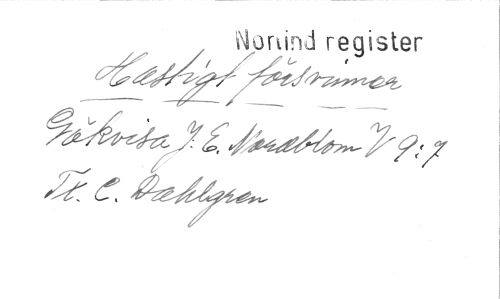 Norlind register
Hastigt försvinner
Gökvisa J. E. Nordblom V 9:7
Tx. C. Dahlgren